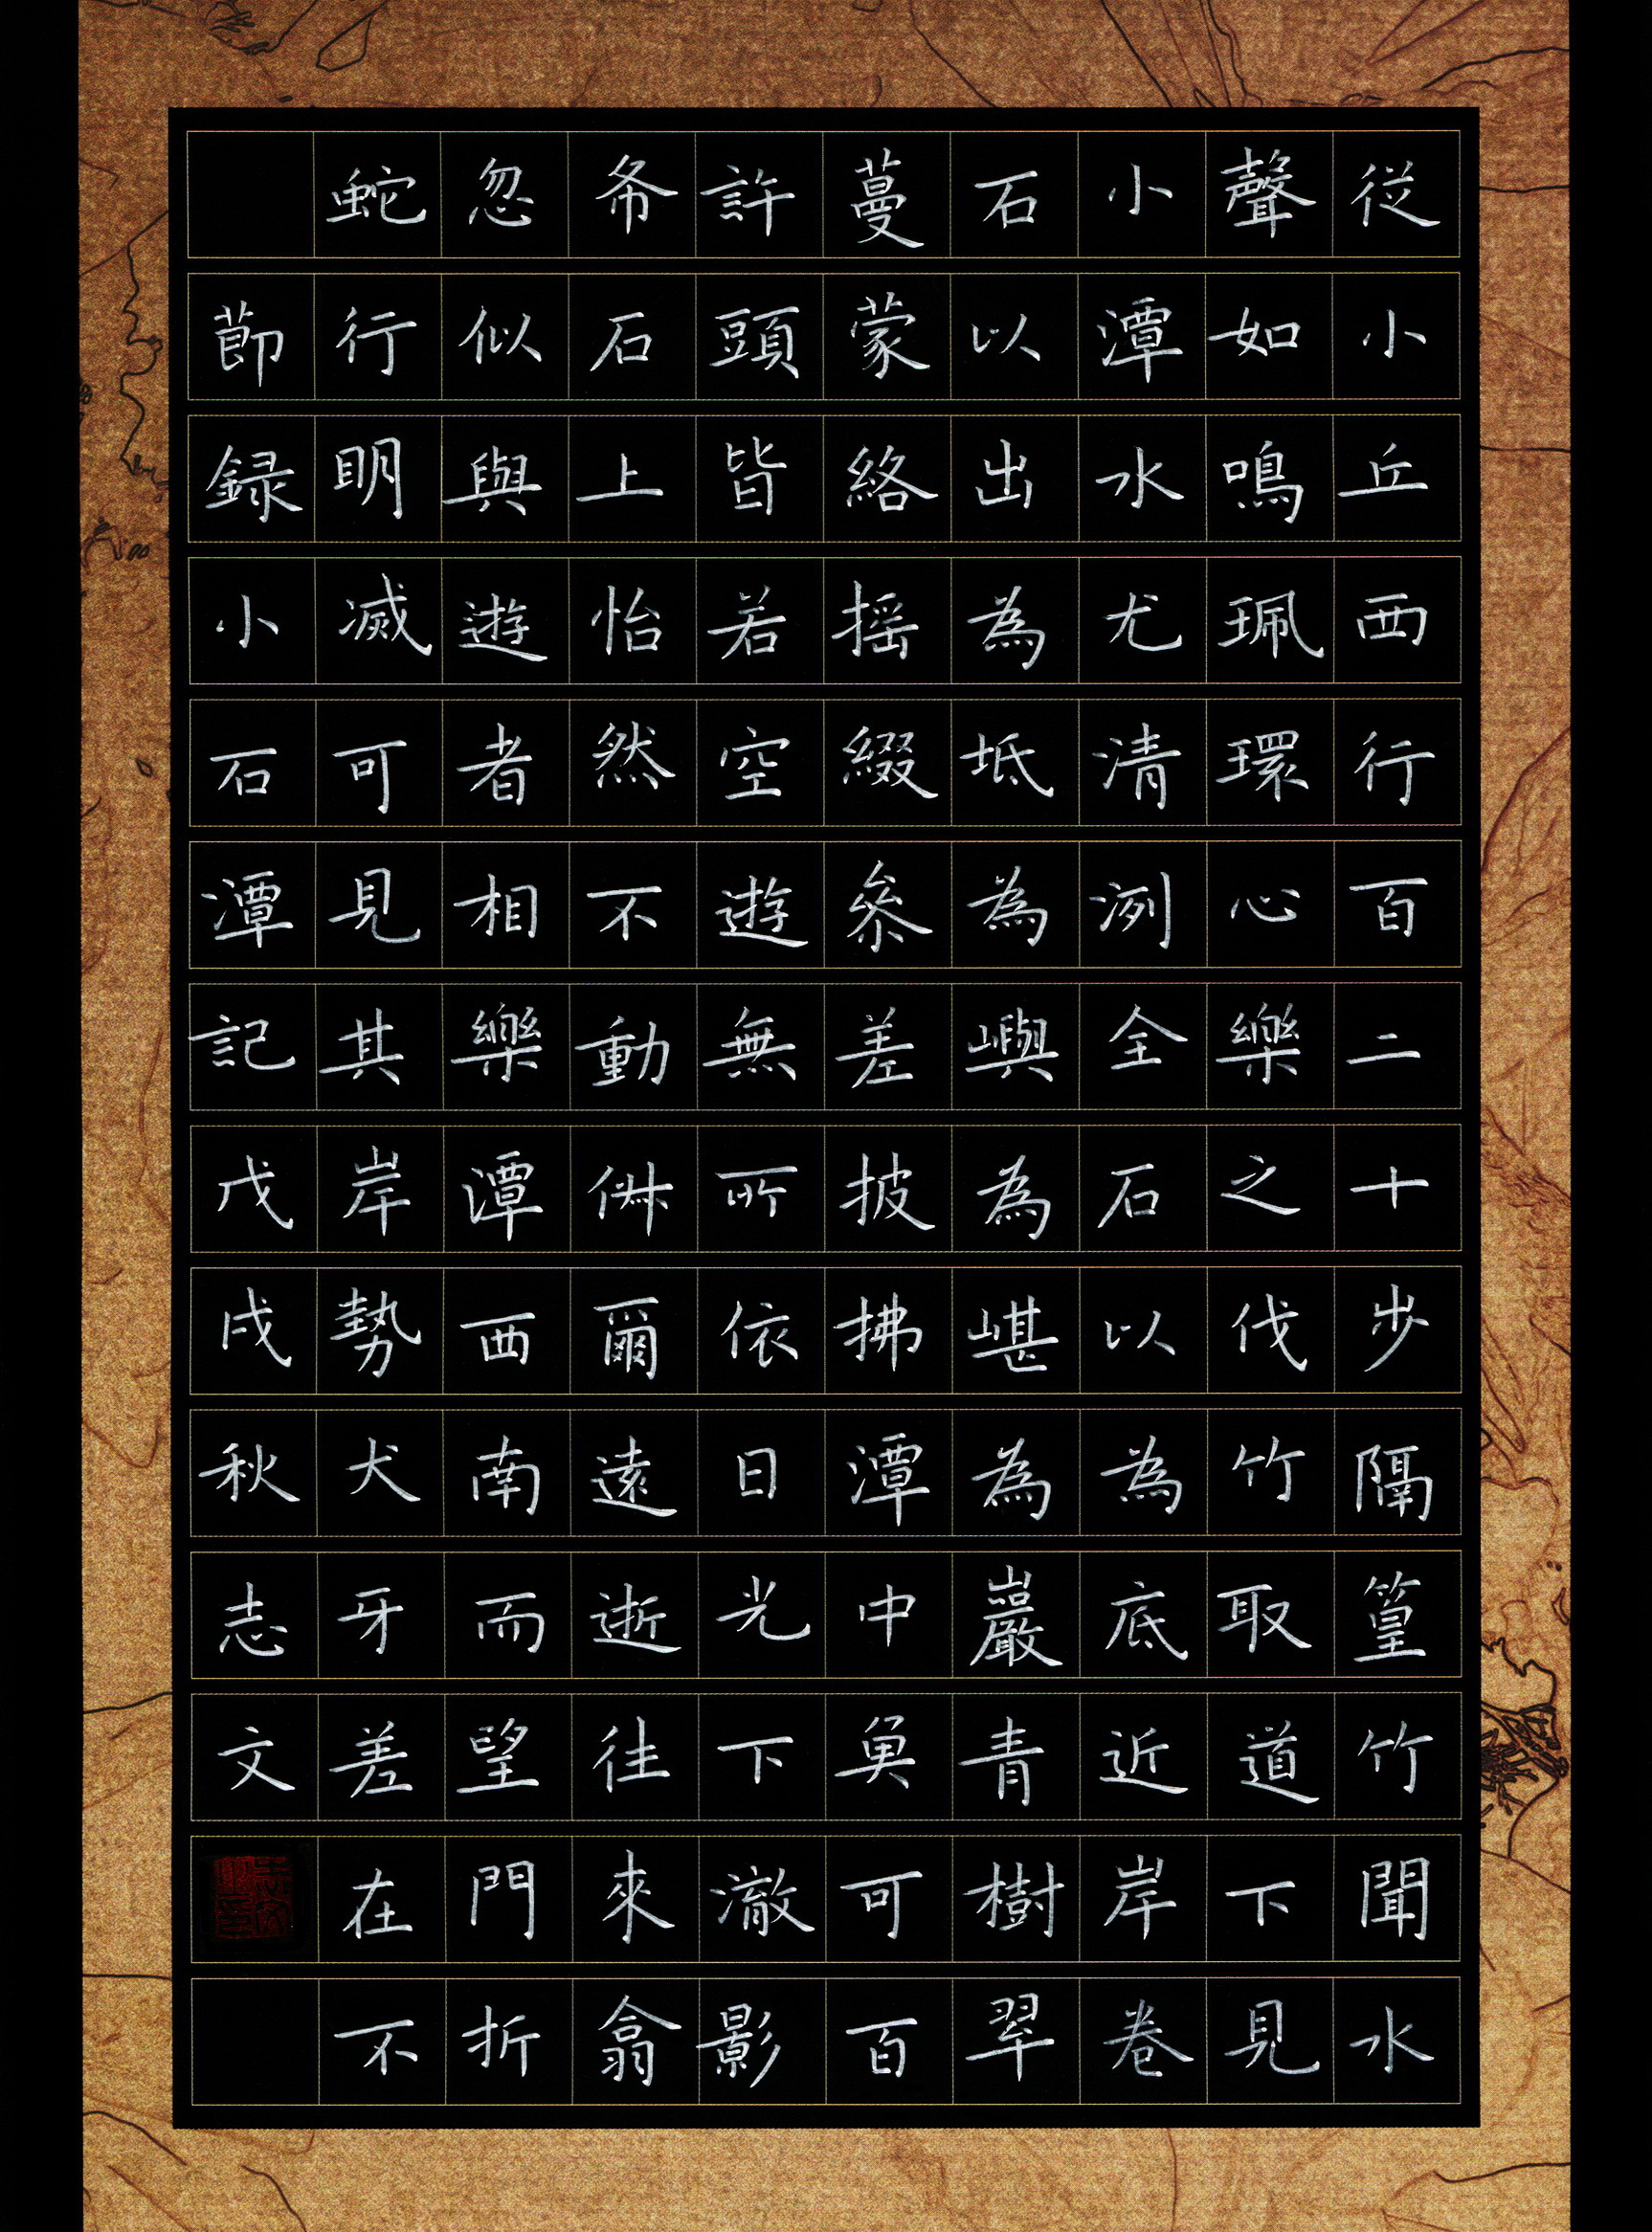 従小丘西行百二十步隔篁竹聞水
聲如鳴珮環心樂之伐竹取道下見
小潭水尤清洌全石以為底近岸卷
石以出為坻為嶼為嵁為巖青樹翠
蔓蒙絡摇綴參差披拂潭中魚可百
許頭皆若空遊無所依日光下澈影
布石上怡然不動俶爾遠逝往來翕
忽似與遊者相樂潭西南而望門折
蛇行明滅可見其岸勢犬牙差在不
節録小石潭記戊戌秋志文